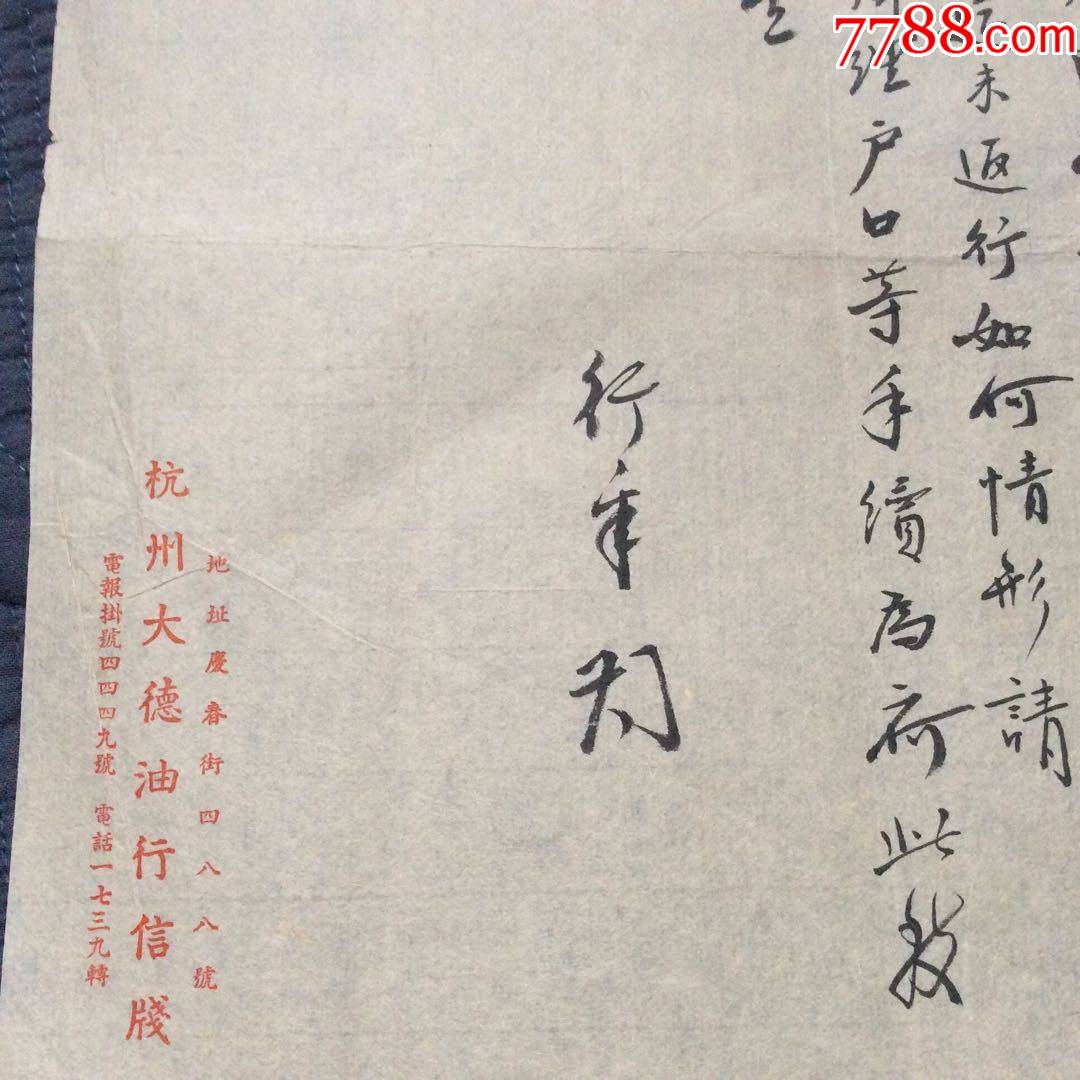 7788.com
未返行如何情形請
户口等手續為荷此致
行
地址慶春街四八八號
杭州大德油行信牋
電報掛號四四四九號 電話一七三九轉